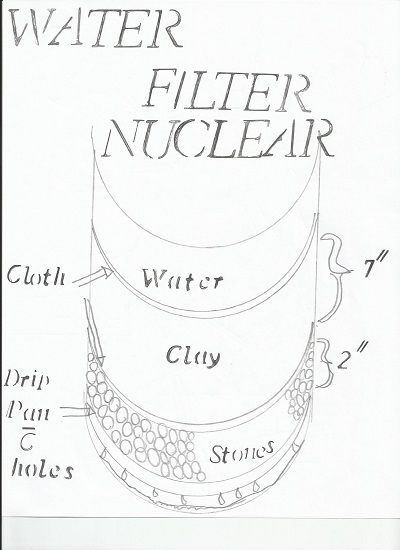 WATER
FILTER
NUCLEAR
Cloth
Water
7"
Clay
2"
Drip
Pan
c̄
holes
Stones